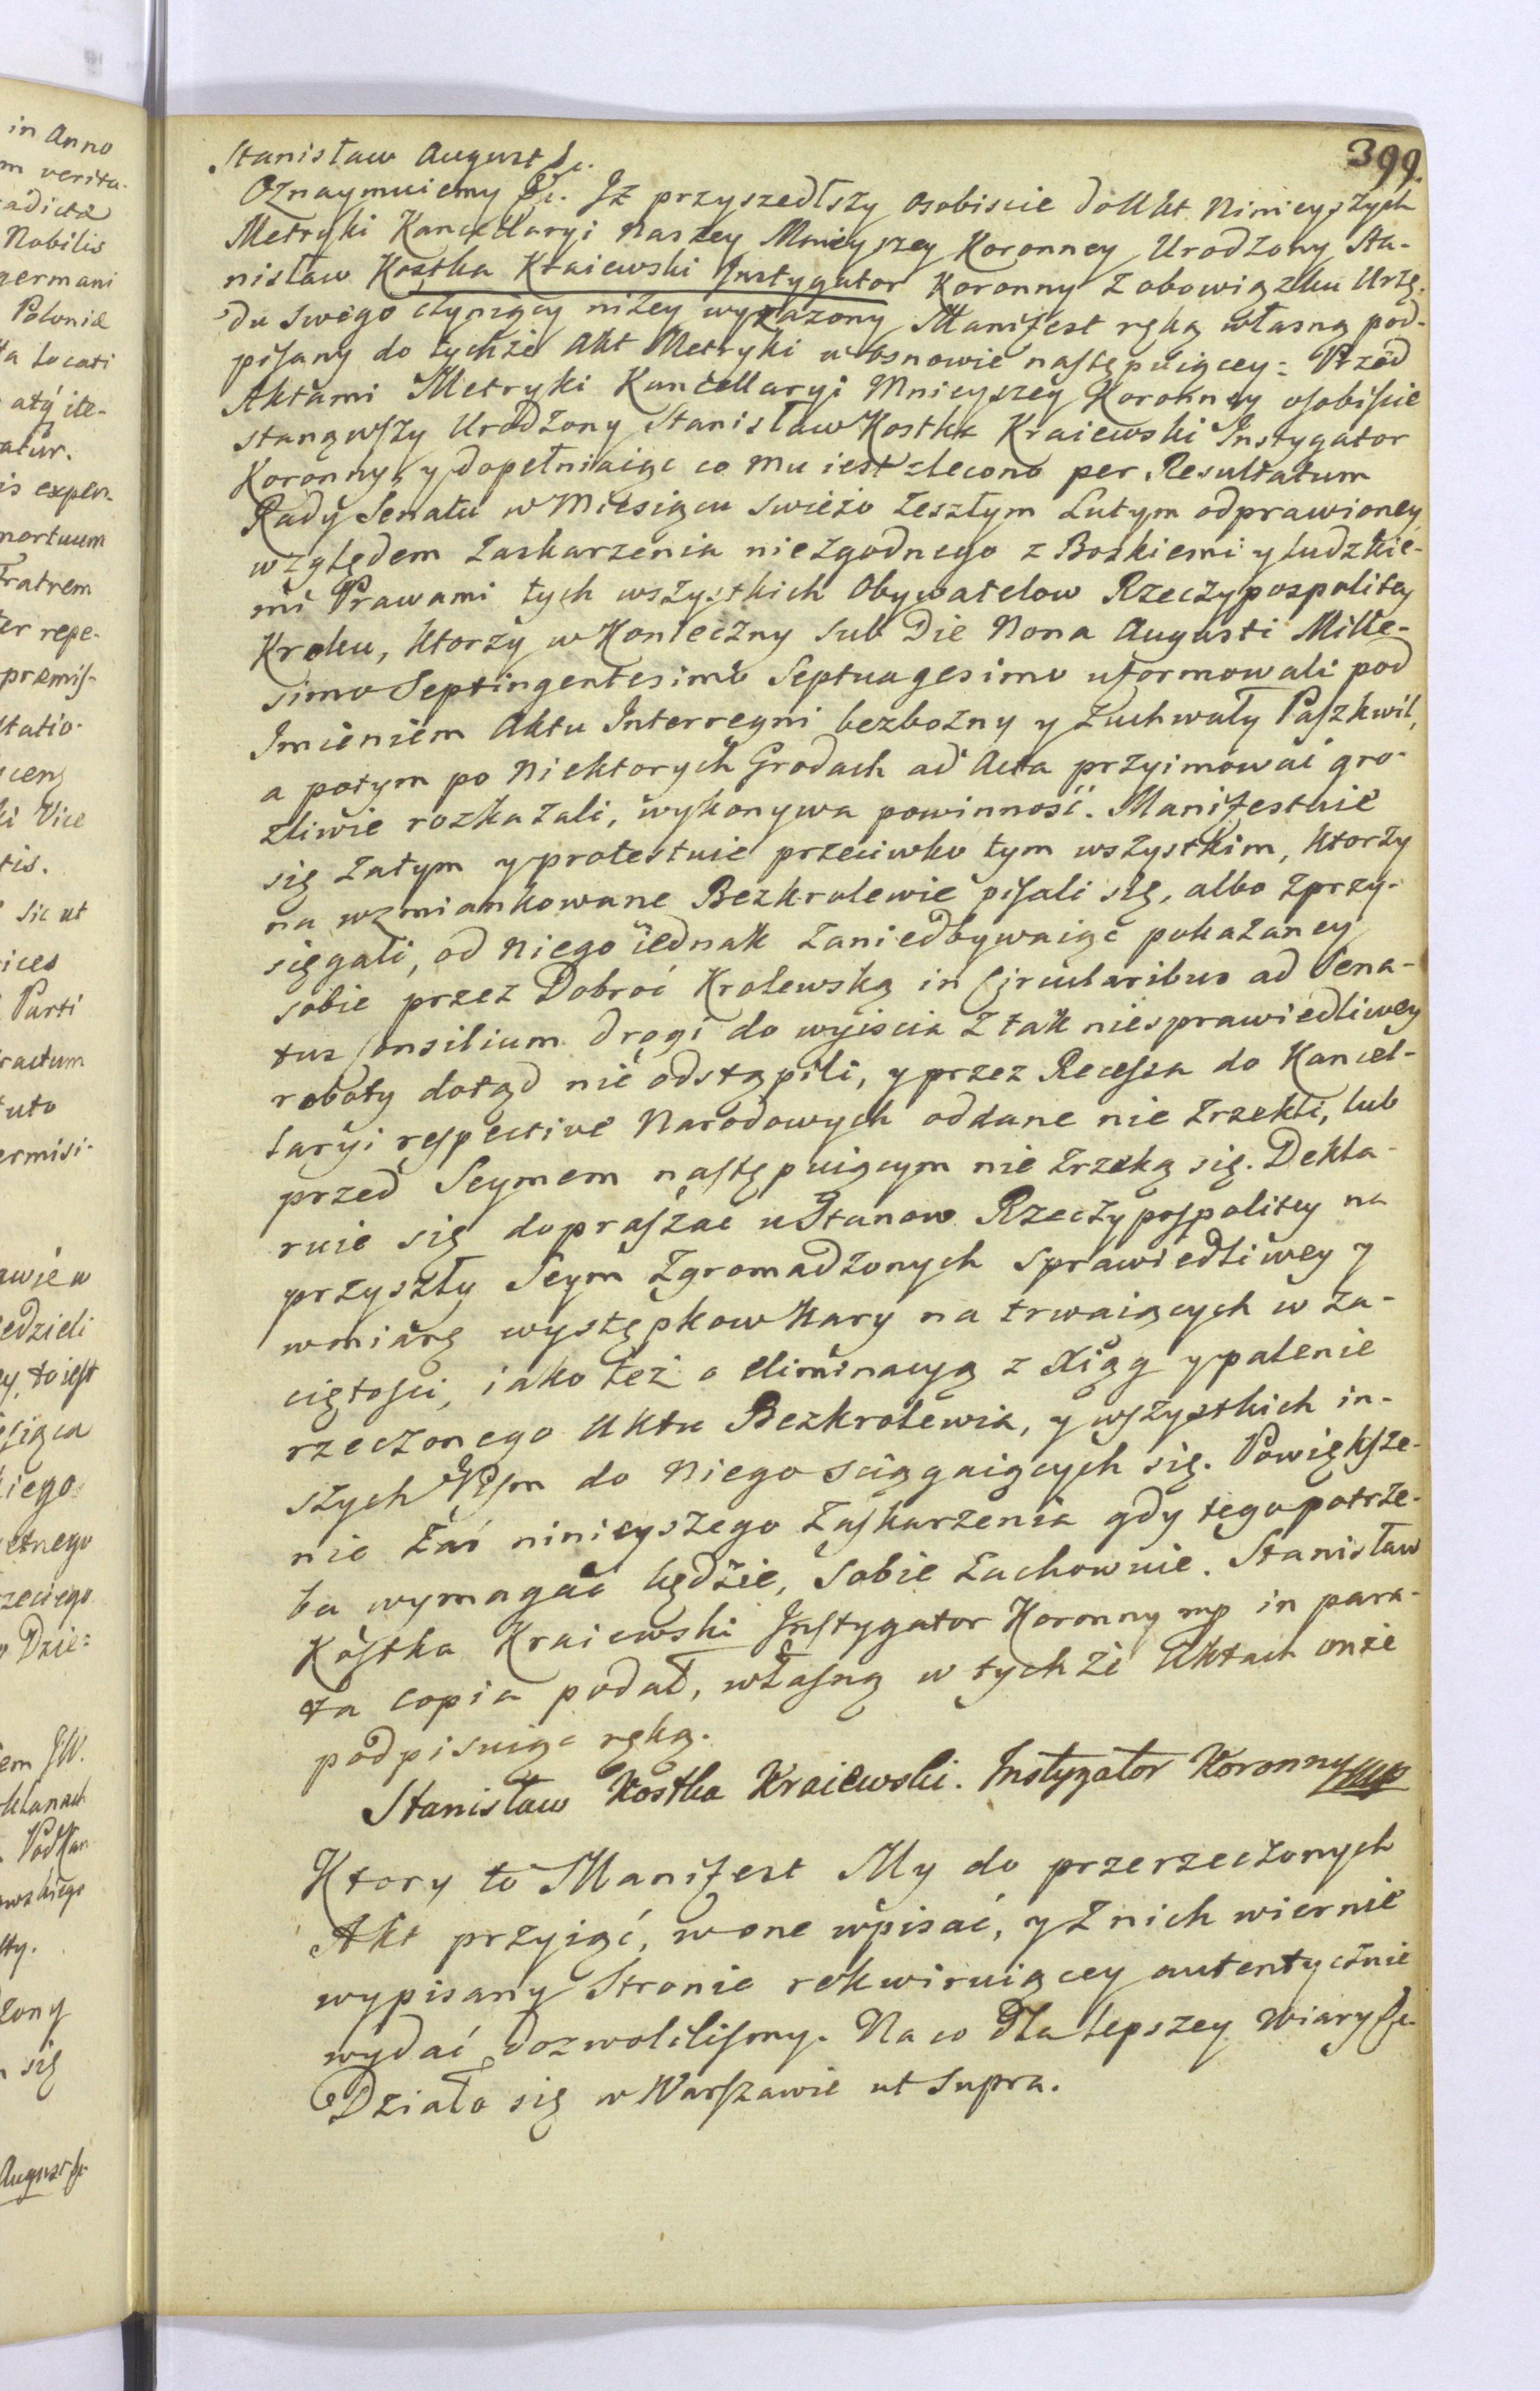 399.
Stanisław August &c.
Oznaymuiemy &c. Jż przyszedłszy osobiscie do Akt Ninieyszych
Metryki Kancellaryi Naszey Mnieyszey Koronney Urodzony Sta-
nisław Kostka Kraiewski Instygator Koronny z obowiązku Urzę-
du swego czyniący niżey wyrażony Manifest ręką własną pod-
pisany do tychże Akt Metryki w osnowie następuiącey: Przed
Aktami Metryki Kancellaryi Mnieyszey Koronney osobiscie
stanąwszy Urodzony Stanisław Kostka Kraiewski Instygator
Koronny, y dopełniaiąc co mu iest zlecono per Resultatum
Rady Senatu w Miesiącu swieżo zeszłym Lutym odprawioney
względem zaskarżenia niezgodnego z Boskiemi y ludzkie-
mi Prawami tych wszystkich Obywatelow Rzeczypospolitey
Kroku, ktorzy w Konieczny sub Die Nona Augusti Mille-
simo Septingentesimo Septuagesimo uformowali pod
Imieniem Aktu Interregni bezbożny y zuchwały Paszkwil,
a potym po niektorych Grodach ad Acta przyimować gro-
zliwie rozkazali, wykonywa powinność. Manifestuie
się zatym y protestuie przeciwko tym wszystkim, ktorzy
na wzmiankowane Bezkrolewie pisali się, albo zprzy-
sięgali, od niego iednak zaniedbywaiąc pokazaney
sobie przez Dobroć Krolewską in Circularibus ad Sena-
tus Consilium drogi do wyiscia z tak niesprawiedliwey
roboty dotąd nie odstąpili, y przez Recessa do Kancel-
laryi respective Narodowych oddane nie zrzekli, lub
przed Seymem następuiącym nie zrzeką się. Dekla-
ruie się dopraszać u Stanow Rzeczypospolitey na
przyszły Seym zgromadzonych sprawiedliwey y
w miarę występkow kary na trwaiących w za-
ciętości, iako też o eliminacyą z Xiąg y palenie
rzeczonego Aktu Bezkrolewia, y wszystkich in-
szych Pism do niego sciągaiących się. Powiększe-
nie zaś ninieyszego zaskarżenia gdy tego potrze-
ba wymagać będzie, sobie zachowuie. Stanisław
Kostka Kraiewski Instygator Koronny mp in para-
ta copia podał, własną w tychże Aktach onże
podpisuiąc ręką.
Stanisław Kostka Kraiewski. Instygator Koronny mp
Ktory to Manifest My do przerzeczonych
Akt przyiąć, w one wpisać, y z nich wiernie
wypisany Stronie rekwiruiącey autentycznie
wydać dozwolilismy. Na co dla lepszey wiary &c.
Działo się w Warszawie ut supra.
in Anno
verita-
Nobilis
germani
Poloniæ
Locati
ite-
expen-
mortuum
Fratrem
repe-
præmis-
Vice
sic ut
Parti
toiest
August &c.